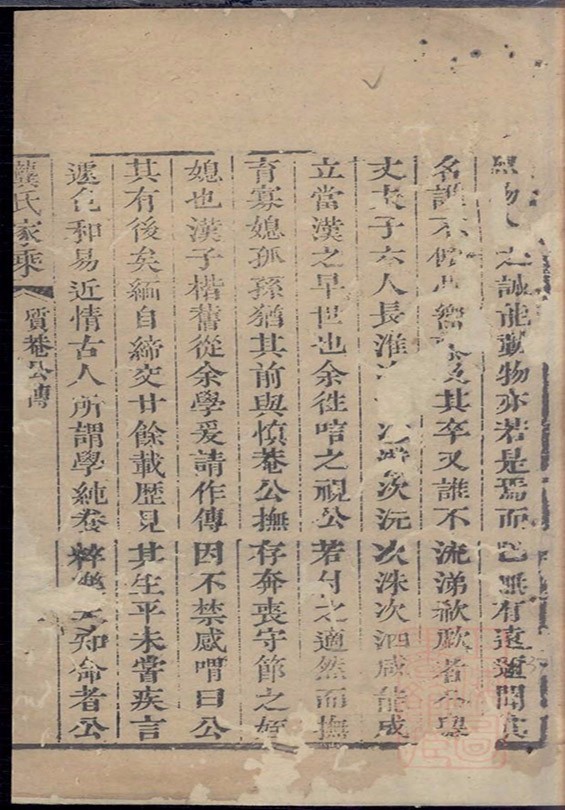 之誠能動物亦若是焉而無有遠邇聞其
名誰不其卒又誰不流涕歔欷者公與
丈夫子六人長淮次次沅次洙次泗咸能成
立當漢之早世也余往唁之視公若付之適然而撫
育寡媳孤孫猶其前與慎菴公撫存奔喪守節之姪
媳也漢子楷舊從余學爰請作傳因不禁感喟曰公
其有後矣緬自締交廿餘載歷見其生平未嘗疾言
遽色和易近情古人所謂學純養粹知命者公
龔氏家乘 質菴公傳